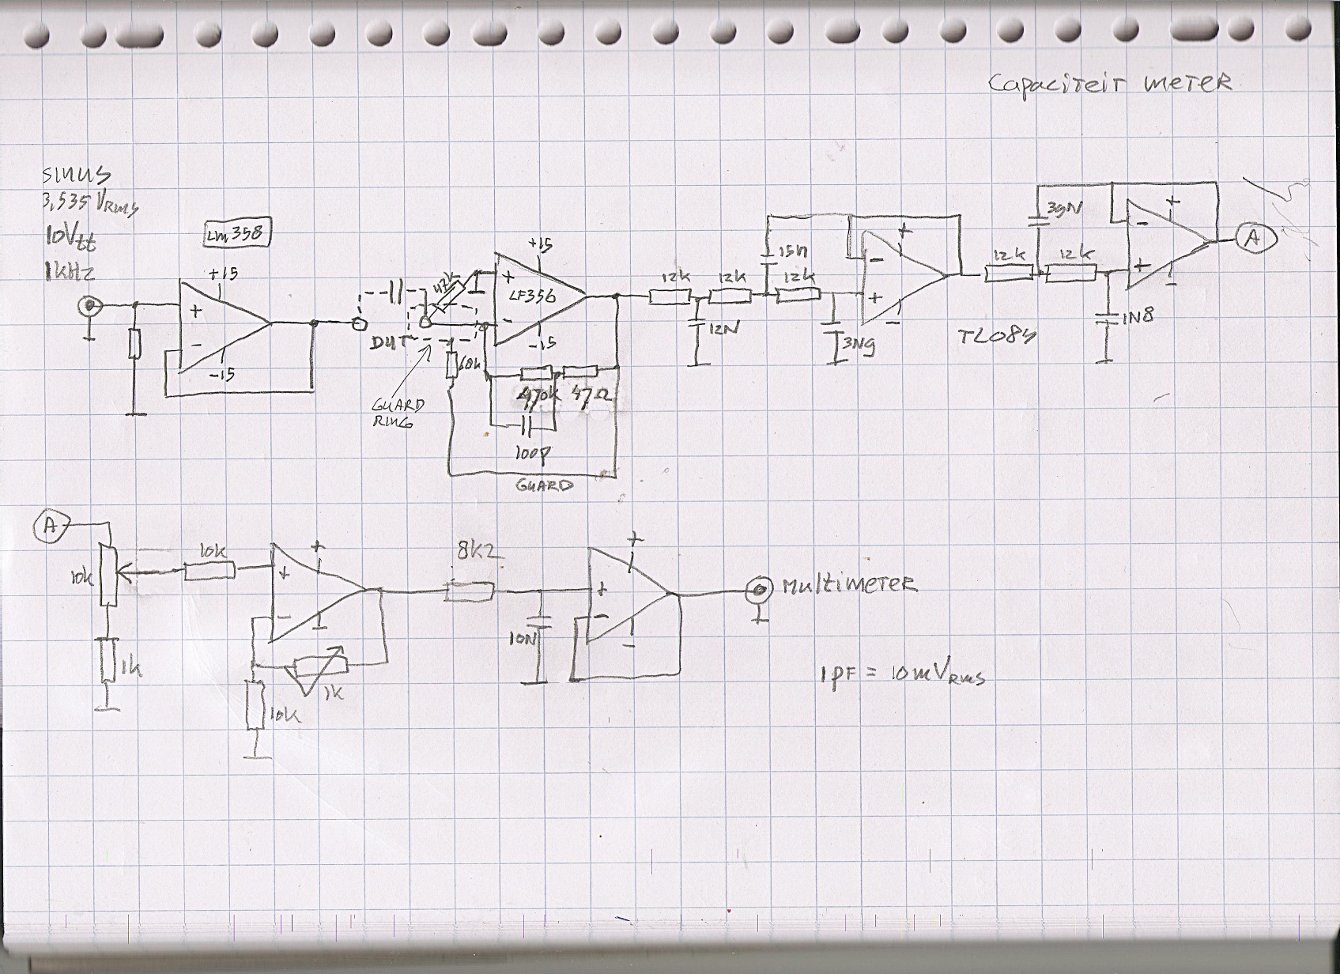 Capaciteit meter
sinus
3,535 VRMS
10Vtt
1kHz
LM358
+15
+
-
-15
DUT
GUARD
RING
47k
+15
+
LF356
-
-15
10k
470k
47Ω
100p
GUARD
12k
12k
12N
15n
12k
3N9
-
+
+
-
TL084
12k
39N
12k
1N8
-
+
+
-
A
A
10k
1k
10k
+
+
-
-
1k
10k
8k2
10N
+
+
-
-
Multimeter
1pF = 10mVRMS